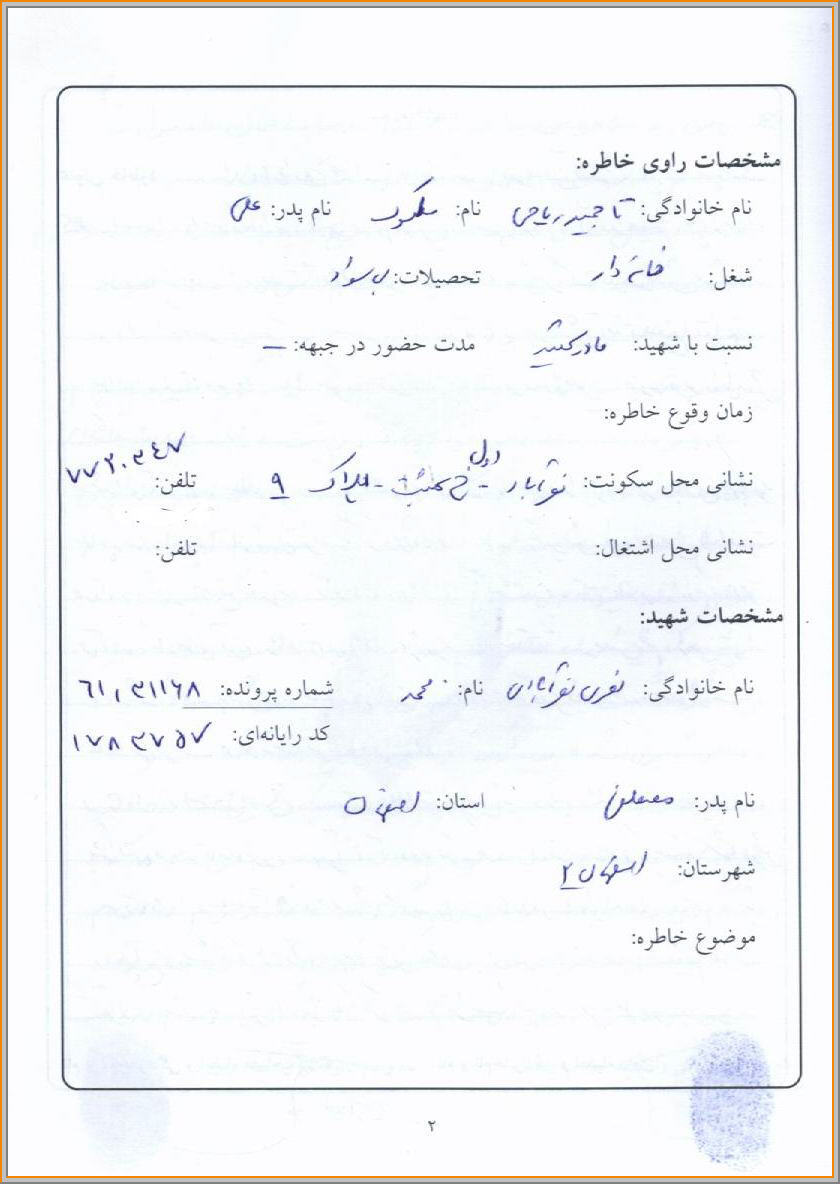 مشخصات راوی خاطره:
نام خانوادگی: تاحمیدریاحی نام: ملکه نام پدر: علی
شغل: خانه دار تحصیلات: بی سواد
نسبت با شهید: مادر شهید مدت حضور در جبهه: —
زمان وقوع خاطره:
نشانی محل سکونت: - خ - پلاک ۹ تلفن: ۷۷۲۰۳۴۷
نشانی محل اشتغال: تلفن:
مشخصات شهید:
نام خانوادگی: نام: محمد شماره پرونده: ۶۱,۳۱۱۶۸
کد رایانه‌ای: ۱۷۸۳۷۵۷
نام پدر: استان: اصفهان
شهرستان: اصفهان ۲
موضوع خاطره:
۲